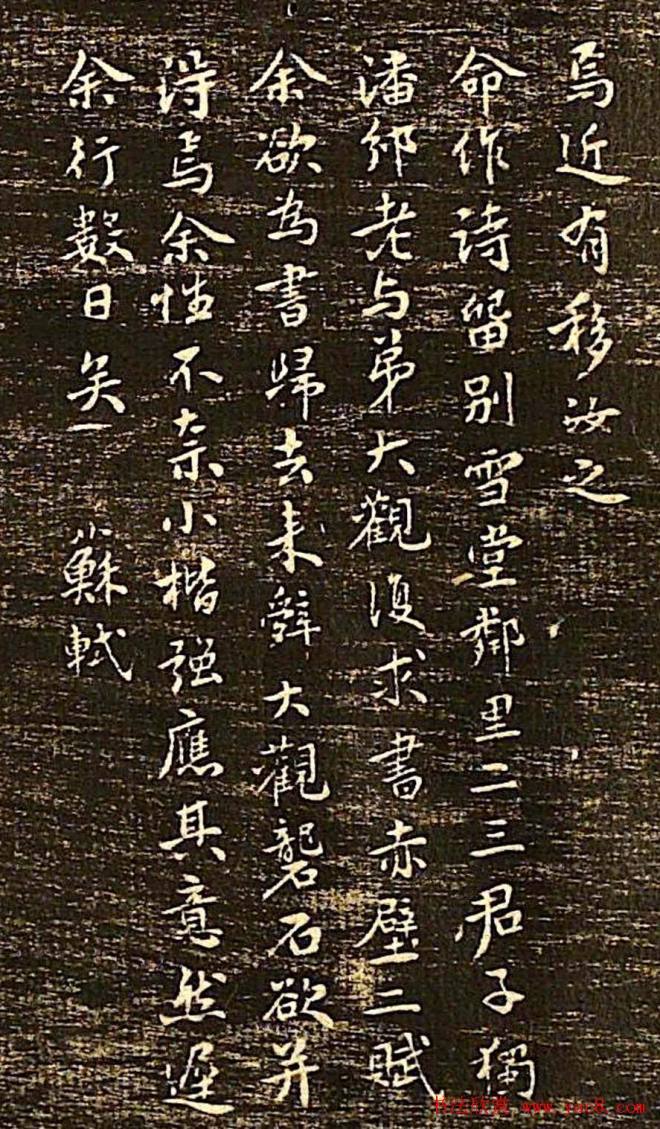 焉近有移汝之
命作诗留别雪堂鄰里二三君子獨
潘邠老与弟大觀復求書赤壁二賦
余欲为書歸去来辭大觀礱石欲并
得焉余性不奈小楷強應其意然遲
余行數日矣 蘇軾
书法欣赏 www.yac8.com